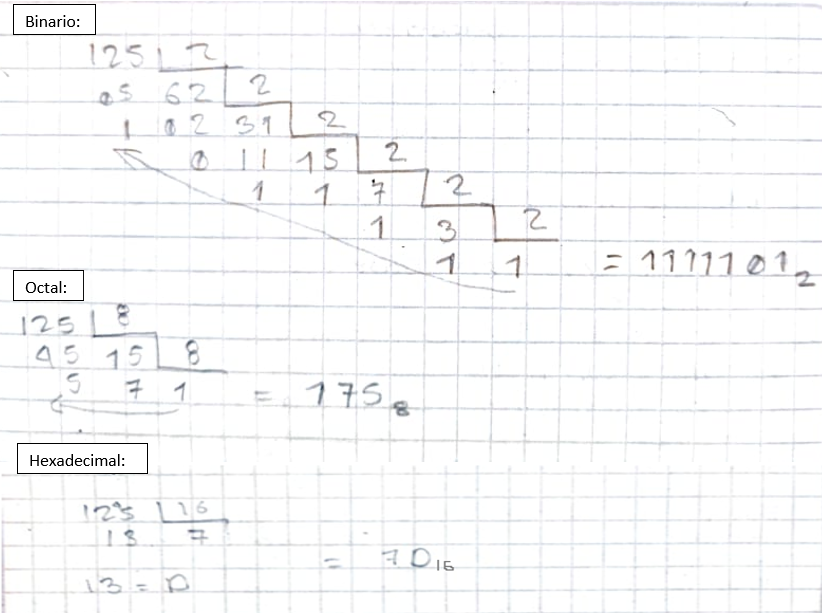 Binario:
125 2
05 62 2
1 02 31 2
0 11 15 2
1 1 7 2
1 3 2
1 1 = 1111101₂
Octal:
125 8
45 15 8
5 7 1 = 175₈
Hexadecimal:
125 16
13 7
= 7D₁₆
13 = D